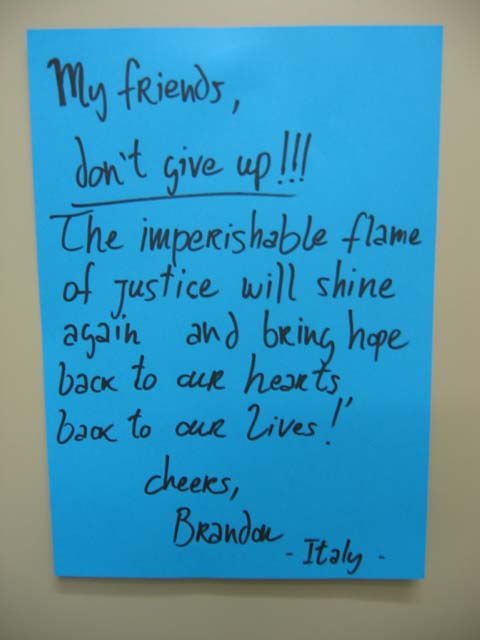 My friends,
don't give up!!!
The imperishable flame
of justice will shine
again and bring hope
back to our hearts
back to our lives!
cheers,
Brandon
- Italy -